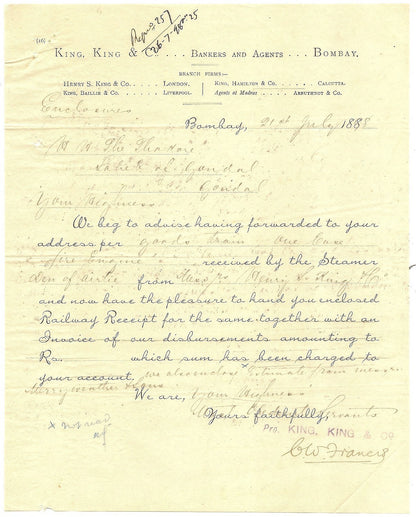 KING, KING & Co. ... BANKERS AND AGENTS ... BOMBAY.
BRANCH FIRMS:—
HENRY S. KING & Co. . . . . LONDON.
KING, BAILLIE & Co. . . . . LIVERPOOL.
KING, HAMILTON & Co. . . . . . CALCUTTA.
Agents at Madras . . . . ARBUTHNOT & Co.
Enclosures
Bombay, 21st July 1888
H H The Thakore
Saheb of Gondal
Gondal
Your Highness
We beg to advise having forwarded to your
address per goods train one case
fire engine received by the Steamer
from Messrs Henry S. King & Co
and now have the pleasure to hand you enclosed
Railway Receipt for the same together with an
Invoice of our disbursements amounting to
Rs. which sum has been charged to
your account, we also enclose Estimate from Messrs
Merryweather & Sons
We are, Your Highness'
Yours faithfully, Servants
Pro. KING, KING & Co
C W Francis